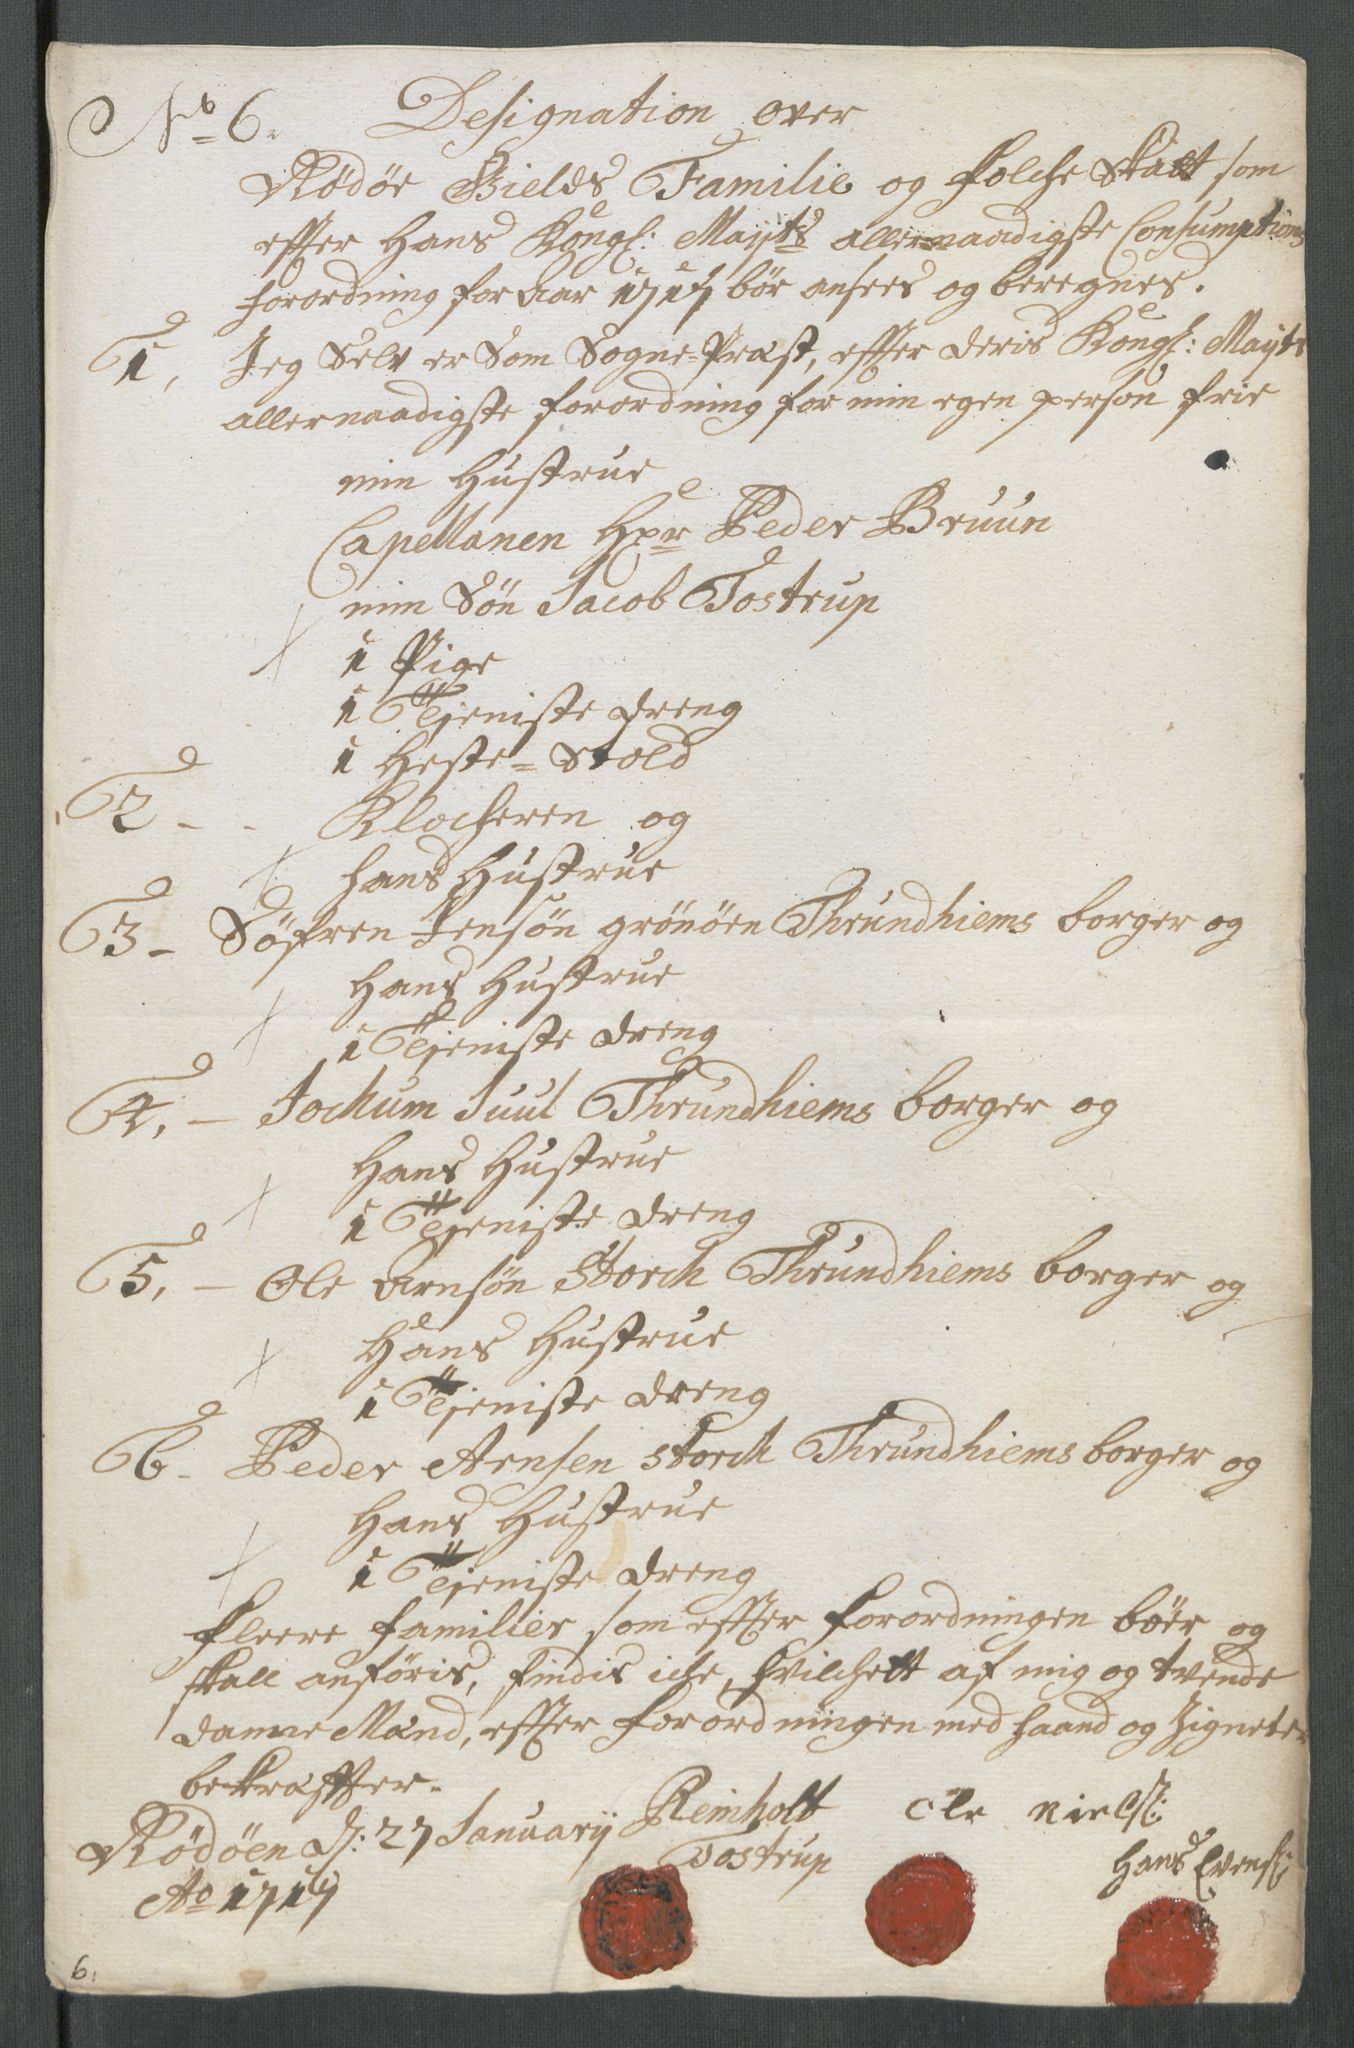 No 6. Designation over
Rödöe Gields Familie og folche Skatt som
effter Hans Kongl: Mayts allernaadigste Consumptions
forordning for Aar 1717 bör ansees og beregnes.
1, Jeg Selv er Som Sogne-Præst, effter deris Kongl: Mayts
allernaadigste forordning for min egen person frie
min Hustrue
Capellanen Hr Peder Bruun
min Sön Jacob Tostrup
1 Pige
1 Tjeniste dreng
1 Heste-Stold
2 - - Klocheren og
hans Hustrue
3 - Söfren Jensön grönöen Thrundhiems borger og
Hans Hustrue
1 Tjeniste dreng
4, - Jochum Juul Thrundhiems borger og
Hans Hustrue
1 Tjeniste dreng
5, - Ole Arnsön Storch Thrundhiems borger og
Hans Hustrue
1 Tjeniste dreng
6 - Peder Arnsen Storch Thrundhiems borger og
Hans Hustrue
1 Tjeniste dreng
fleere familier som effter forordningen böer og
skall anföris, findis iche, hvilchett af mig og tvende
danne Mænd, effter forordningen med haand og Zigneter
bekræffter.
Rödöen d: 27 Januarij Reinholt Ole Nielss:
Ao 1717 Tostrup Hans Evenss:
6.